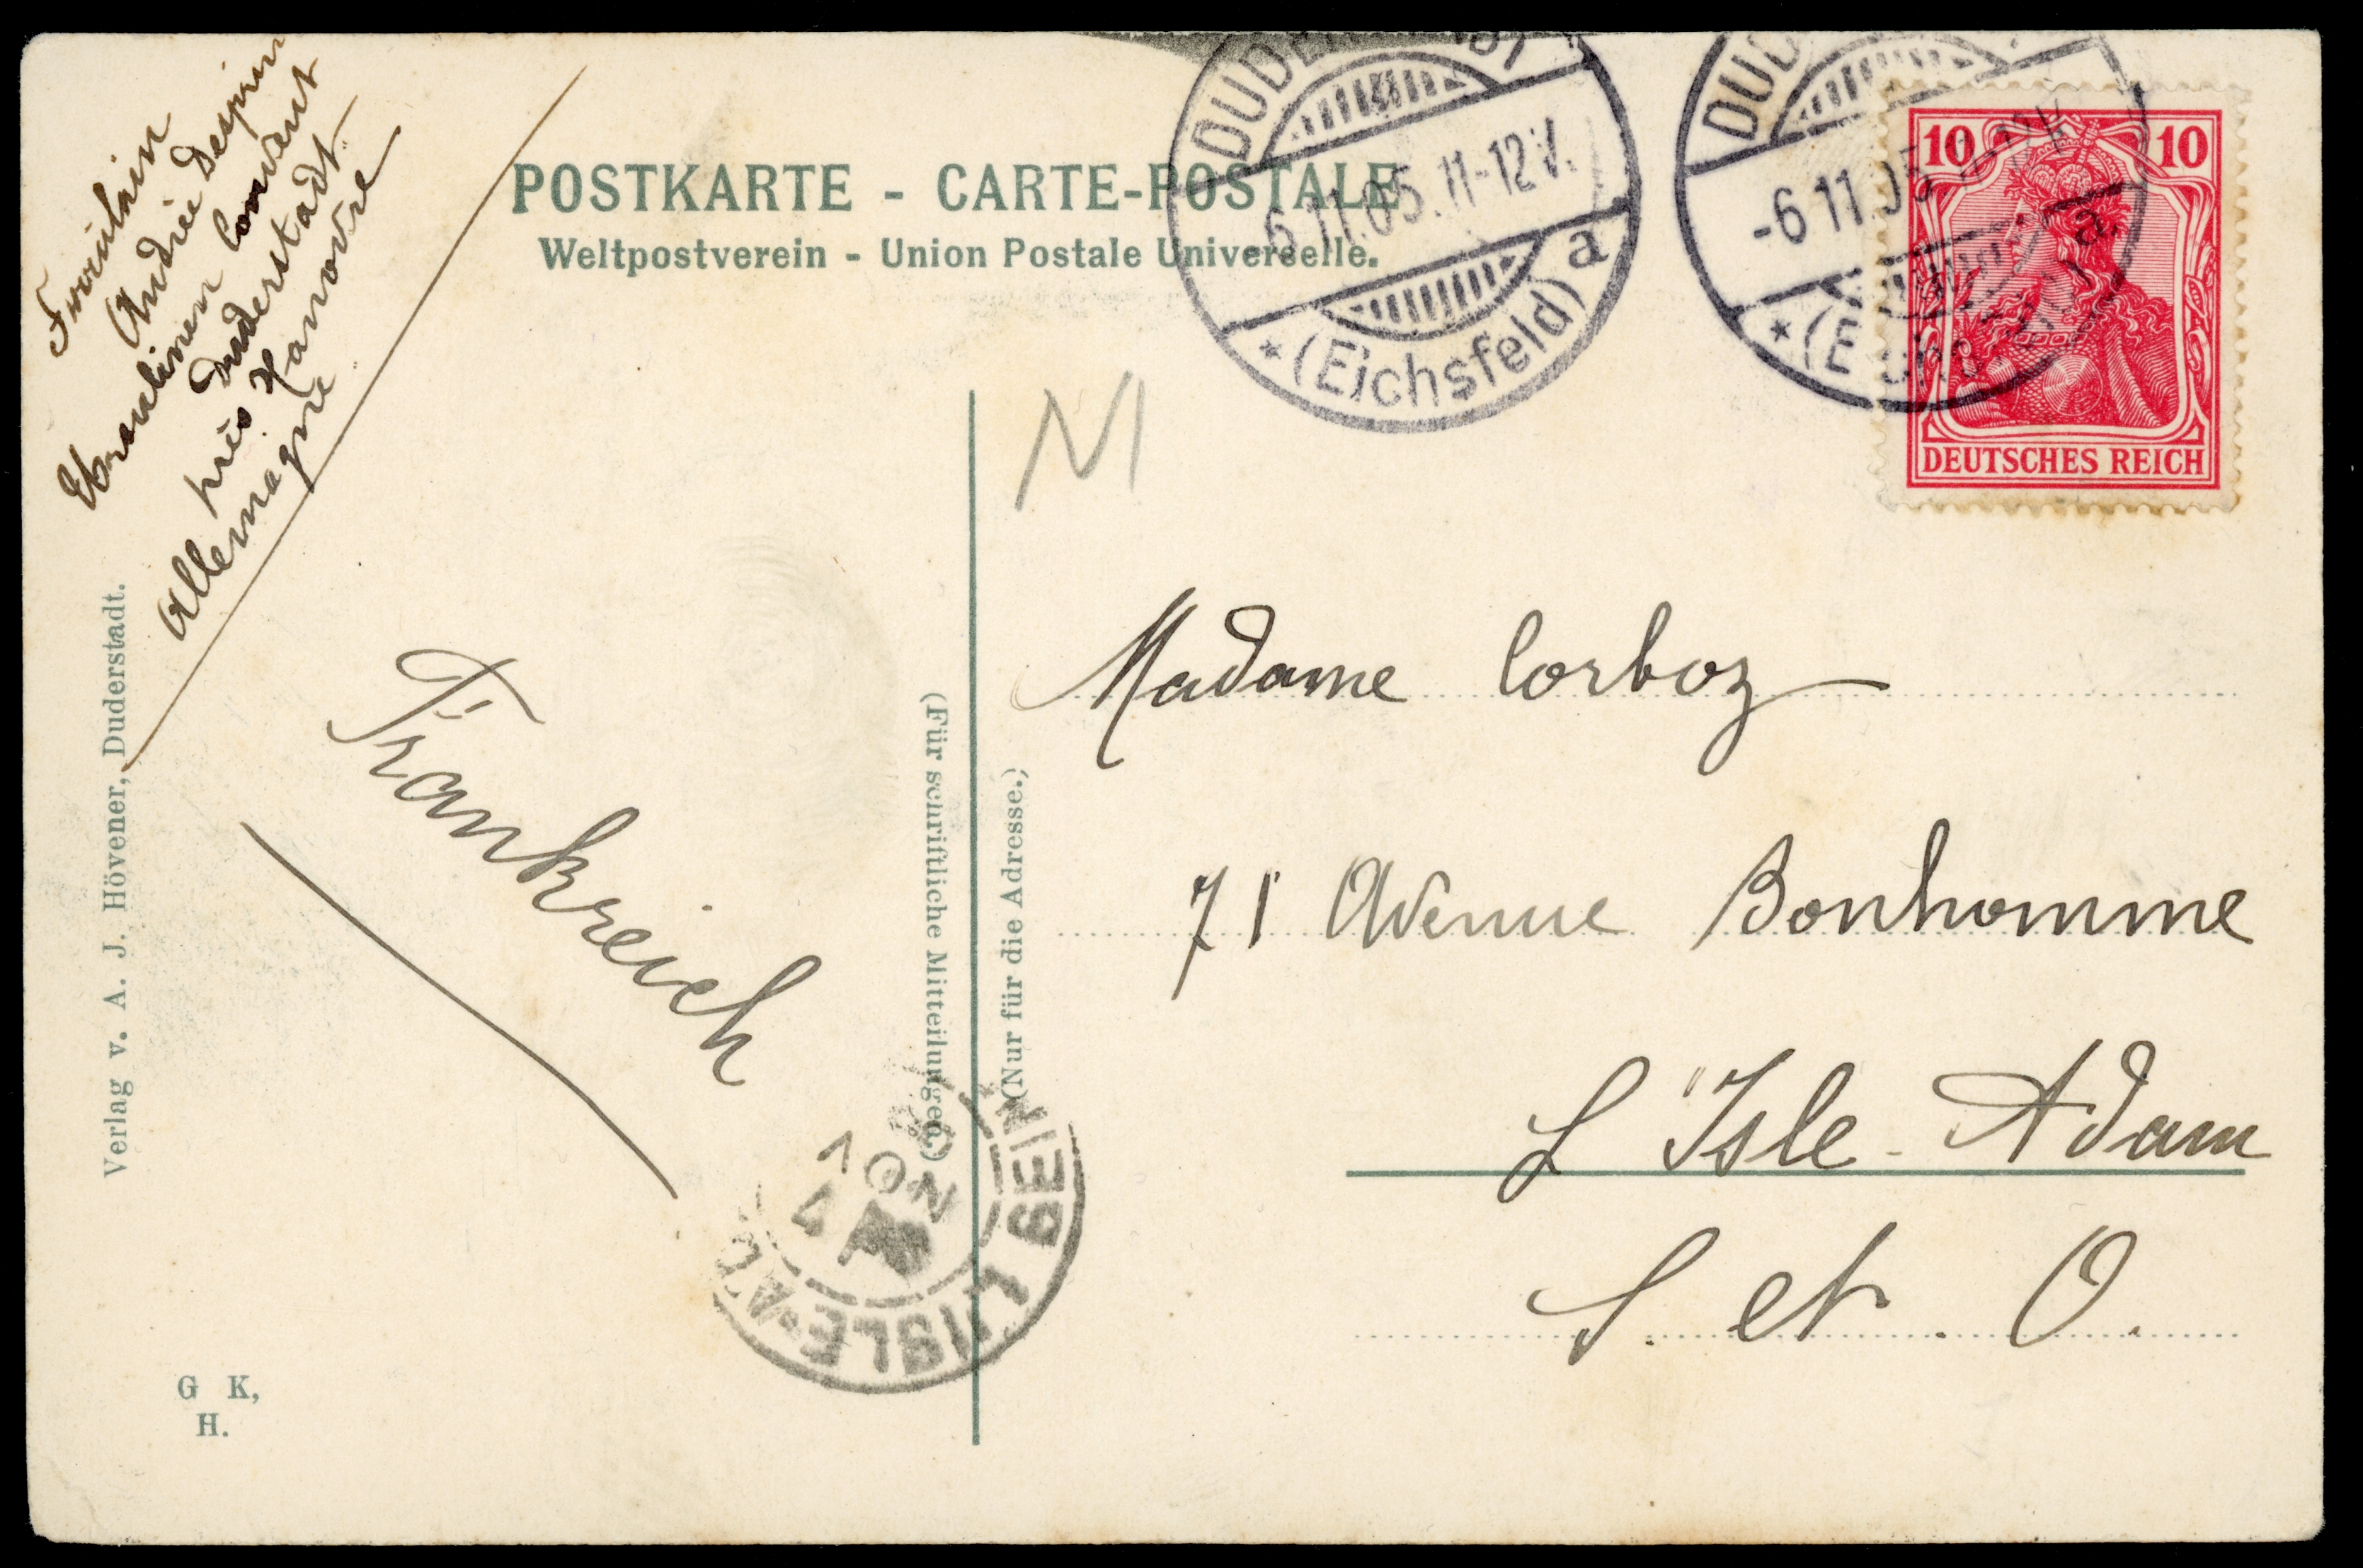 Fräulein
Andrée
Ursulinen Convent
Duderstadt
près Hanovre
Allemagne
POSTKARTE - CARTE-POSTALE
Weltpostverein - Union Postale Universelle.
DUDERSTADT
-6.11.05.11-12V.
a
* (Eichsfeld)
DUD
-6.11.05
a
* (Eichsfeld)
10 10
DEUTSCHES REICH
N
Madame Corboz
71 Avenue Bonhomme
L'Isle-Adam
S. et O.
Frankreich
(Für schriftliche Mitteilungen.)
(Nur für die Adresse.)
Verlag v. A. J. Hövener, Duderstadt.
NOV
L'ISLE-AD
SEIN
G K,
H.